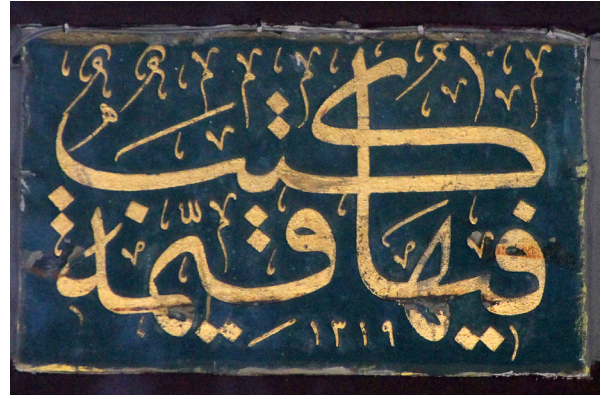 فيها كتب قيمة
١٣١٩